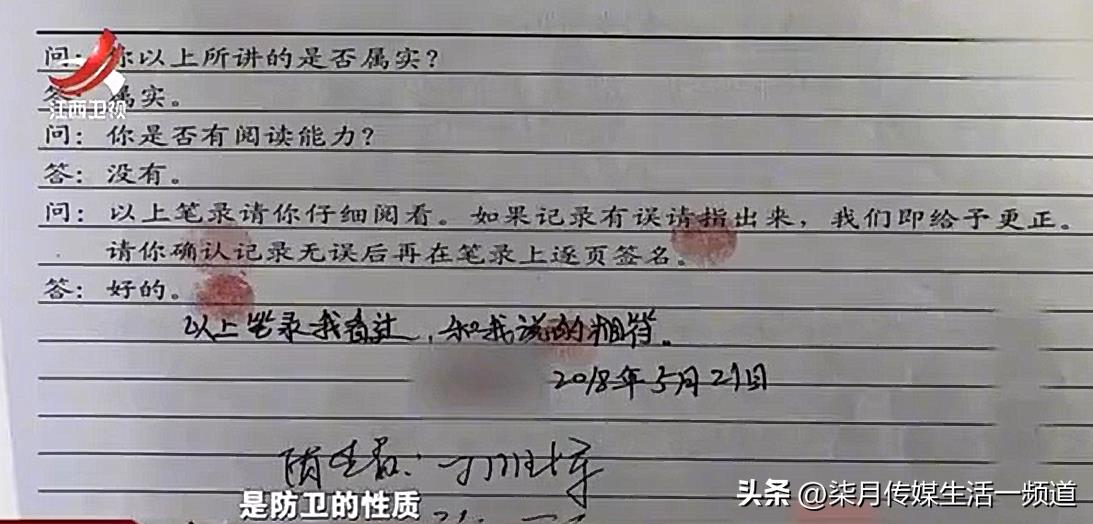 问：你以上所讲的是否属实？
答：属实。
江西卫视
问：你是否有阅读能力？
答：没有。
问：以上笔录请你仔细阅看。如果记录有误请指出来，我们即给予更正。
请你确认记录无误后再在笔录上逐页签名。
答：好的。
以上笔录我看过，和我说的相符。
2018年5月21日
是防卫的性质
头条 @柒月传媒生活一频道